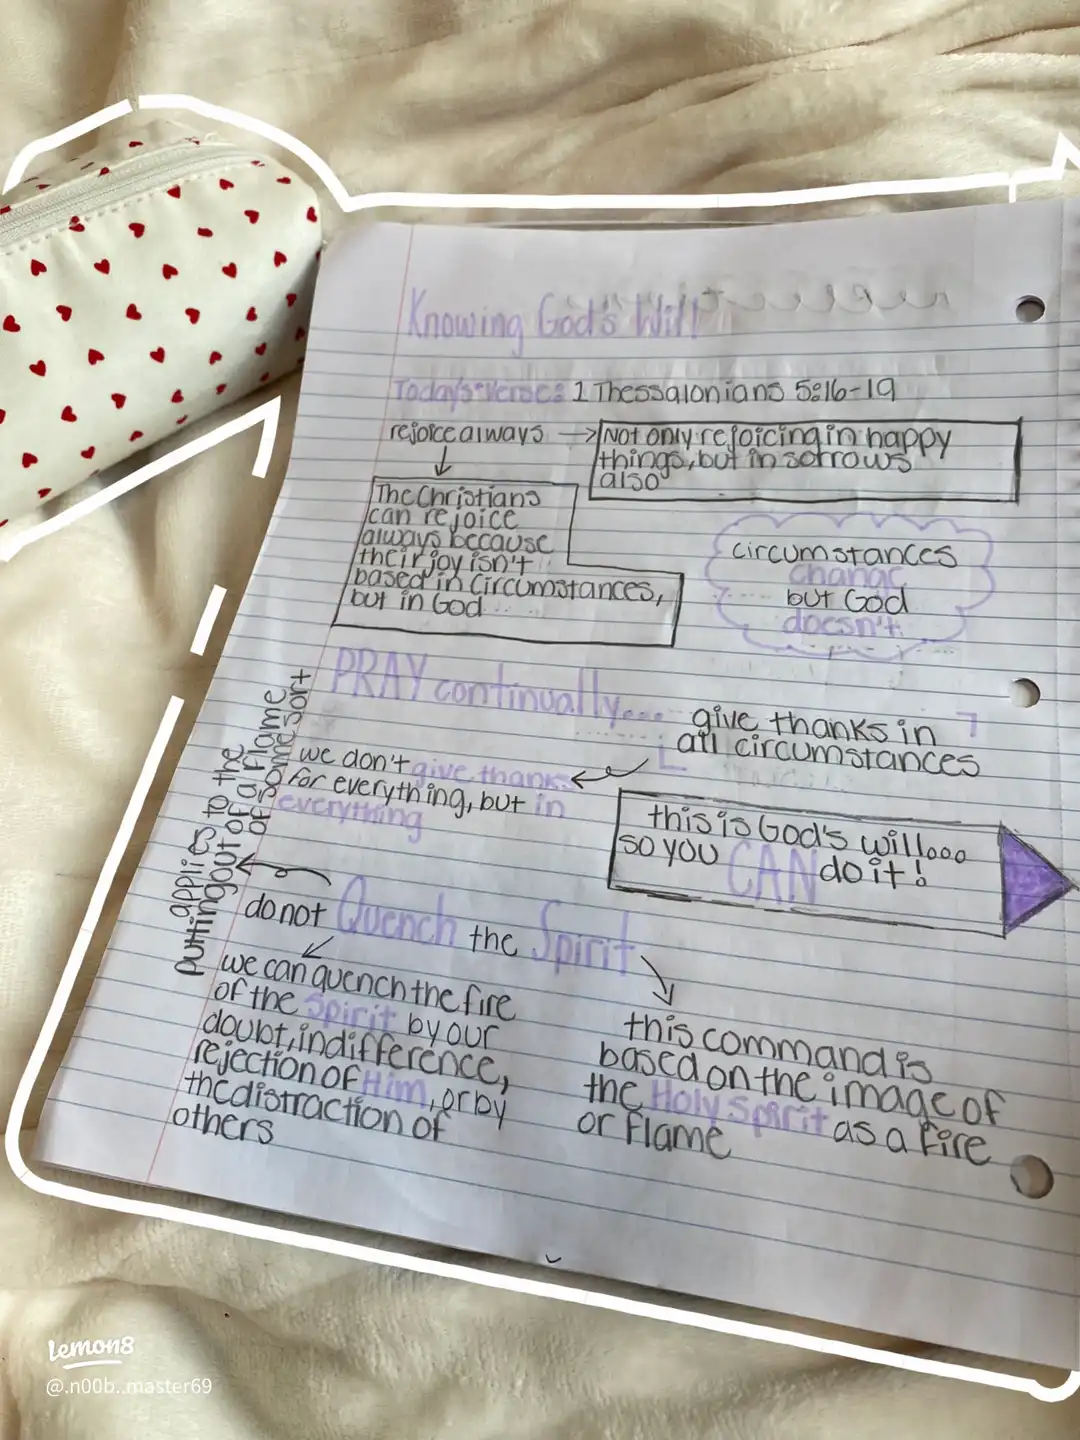 Knowing God's Will
Today's Verse: 1 Thessalonians 5:16-19
rejoice always → Not only rejoicing in happy
things, but in sorrows
also
The Christians
can rejoice
always because
their joy isn't
based in circumstances,
but in God
circumstances
change
but God
doesn't
PRAY continually...
give thanks in
all circumstances
we don't give thanks
for everything, but in
everything
this is God's will...
so you CAN do it!
applies to the
putting out of a flame
of some sort
do not Quench the Spirit
we can quench the fire
of the Spirit by our
doubt, indifference,
rejection of Him, or by
the distraction of
others
this command is
based on the image of
the Holy Spirit as a fire
or flame
lemon8
@.n00b..master69